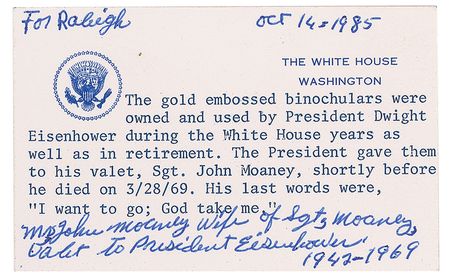 For Raleigh
Oct 14 = 1985
THE WHITE HOUSE
WASHINGTON
The gold embossed binochulars were
owned and used by President Dwight
Eisenhower during the White House years as
well as in retirement. The President gave them
to his valet, Sgt. John Moaney, shortly before
he died on 3/28/69. His last words were,
"I want to go; God take me."
Mrs John Moaney Wife of Sgt, Moaney,
Valet To President Eisenhower
1942-1969